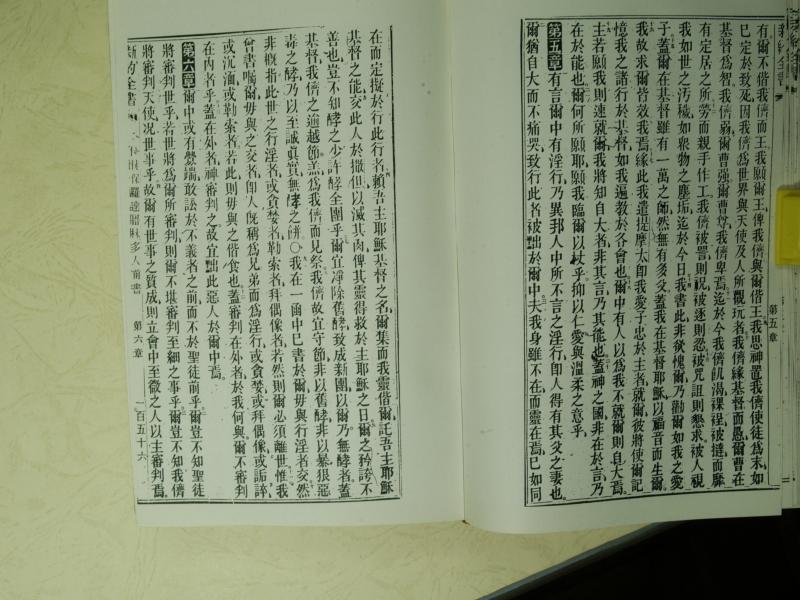 有爾不偕我儕而王我願爾王俾我儕與爾偕王我思神置我儕使徒為末如
已定於致死因我儕為世界與天使及人所觀玩者我儕緣基督而愚爾曹在
基督為智我儕弱爾曹强爾曹尊我儕卑焉迄於今我儕飢渴裸裎被撻而靡
有定居之所勞而親手作工我儕被詈則祝被逐則忍被咒詛則懇求被人視
我如世之汚穢如衆物之塵垢迄於今日我書此非欲愧爾乃勸爾如我之愛
子蓋爾在基督雖有一萬之師然無有多父蓋我在基督耶穌以福音而生爾
我故求爾皆效我焉緣此我遣提摩太卽我愛子忠於主者就爾彼將使爾記
憶我之諸行於基督如我遍教於各會也爾中有人以為我不就爾則自大焉
主若願我則速就爾我將知自大者非其言乃其能也蓋神之國非在於言乃
在於能也爾何所願耶願我臨爾以杖乎抑以仁愛與溫柔之意乎
第五章 有言爾中有淫行乃異邦人中所不言之淫行卽人得有其父之妻也
爾猶自大而不痛哭致行此者被黜於爾中夫我身雖不在而靈在焉已如同
第五章
在而定擬於行此行者賴吾主耶穌基督之名爾集而我靈偕爾託吾主耶穌
基督之能交此人於撒但以滅其肉俾其靈得救於主耶穌之日爾之矜誇不
善也豈不知酵之少許酵全團乎爾宜凈除舊酵致成新團以爾乃無酵者蓋
基督我儕之逾越節羔為我儕而見祭我儕故宜守節非以舊酵非以暴狠惡
毒之酵乃以至誠眞實無酵之餅○我在一函中已書於爾毋與行淫者交然
非槪指此世之行淫者或貪婪者勒索者拜偶像者若然則爾必須離世惟我
曾書囑爾毋與之交者卽人旣稱為兄弟而為淫行或貪婪或拜偶像或詬誶
或沉湎或勒索者若此則毋與之偕食也蓋審判在外者於我何與爾不審判
在內者乎蓋在外者神審判之故宜黜此惡人於爾中焉
第六章 爾中或有釁端敢訟於不義者之前而不於聖徒前乎爾豈不知聖徒
將審判世乎若世將為爾所審判則爾不堪審判至細之事乎爾豈不知我儕
將審判天使况世事乎故爾有世事之質成則立會中至微之人以主審判焉
新約全書 使徒保羅達哥林多人前書 第六章 一百五十六